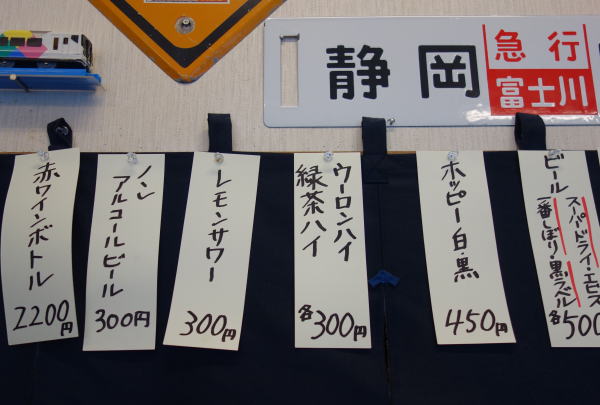 静岡
急行
富士川
ビール
スーパードライ・エビス
一番しぼり・黒ラベル
各500
ホッピー白・黒
450円
ウーロンハイ
緑茶ハイ
各300円
レモンサワー
300円
ノン
アルコールビール
300円
赤ワインボトル
2200円